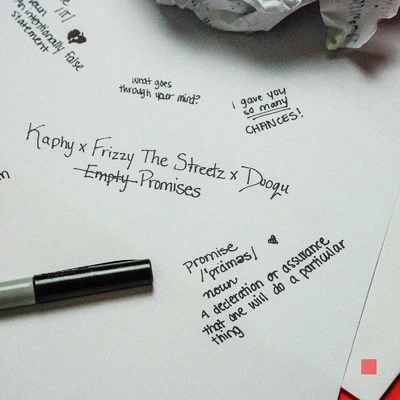 noun
/lī/
An intentionally false
statement
what goes
through your mind?
i gave you
so many
CHANCES!
Kaphy x Frizzy The Streetz x Doogu
Empty Promises
Promise
/'präməs/
noun
A decleration or assurance
that one will do a particular
thing